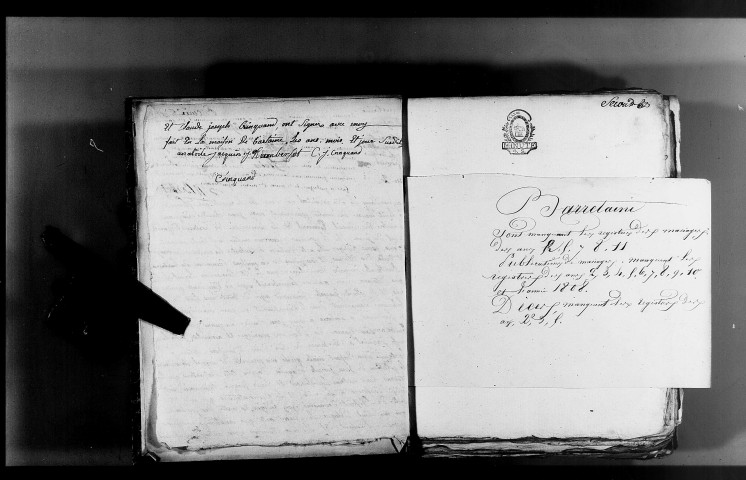 et Claude joseph Crinquand ont signer avec moy
fait en la maison de Barlaine, les ans, mois et jour Susdit
anatoile jacquin j humberset C. J. Crinquand
Crinquand
Second
Barretaine
Sont manquant les registres des mariages
des ans 5. 7 8. 11
Publications de mariages, manquent les
registres des ans 2, 3, 4, 5, 6, 7, 8, 9, 10
et l'année 1808
Décès, manquent les registres des
an, 2, 3, 5.